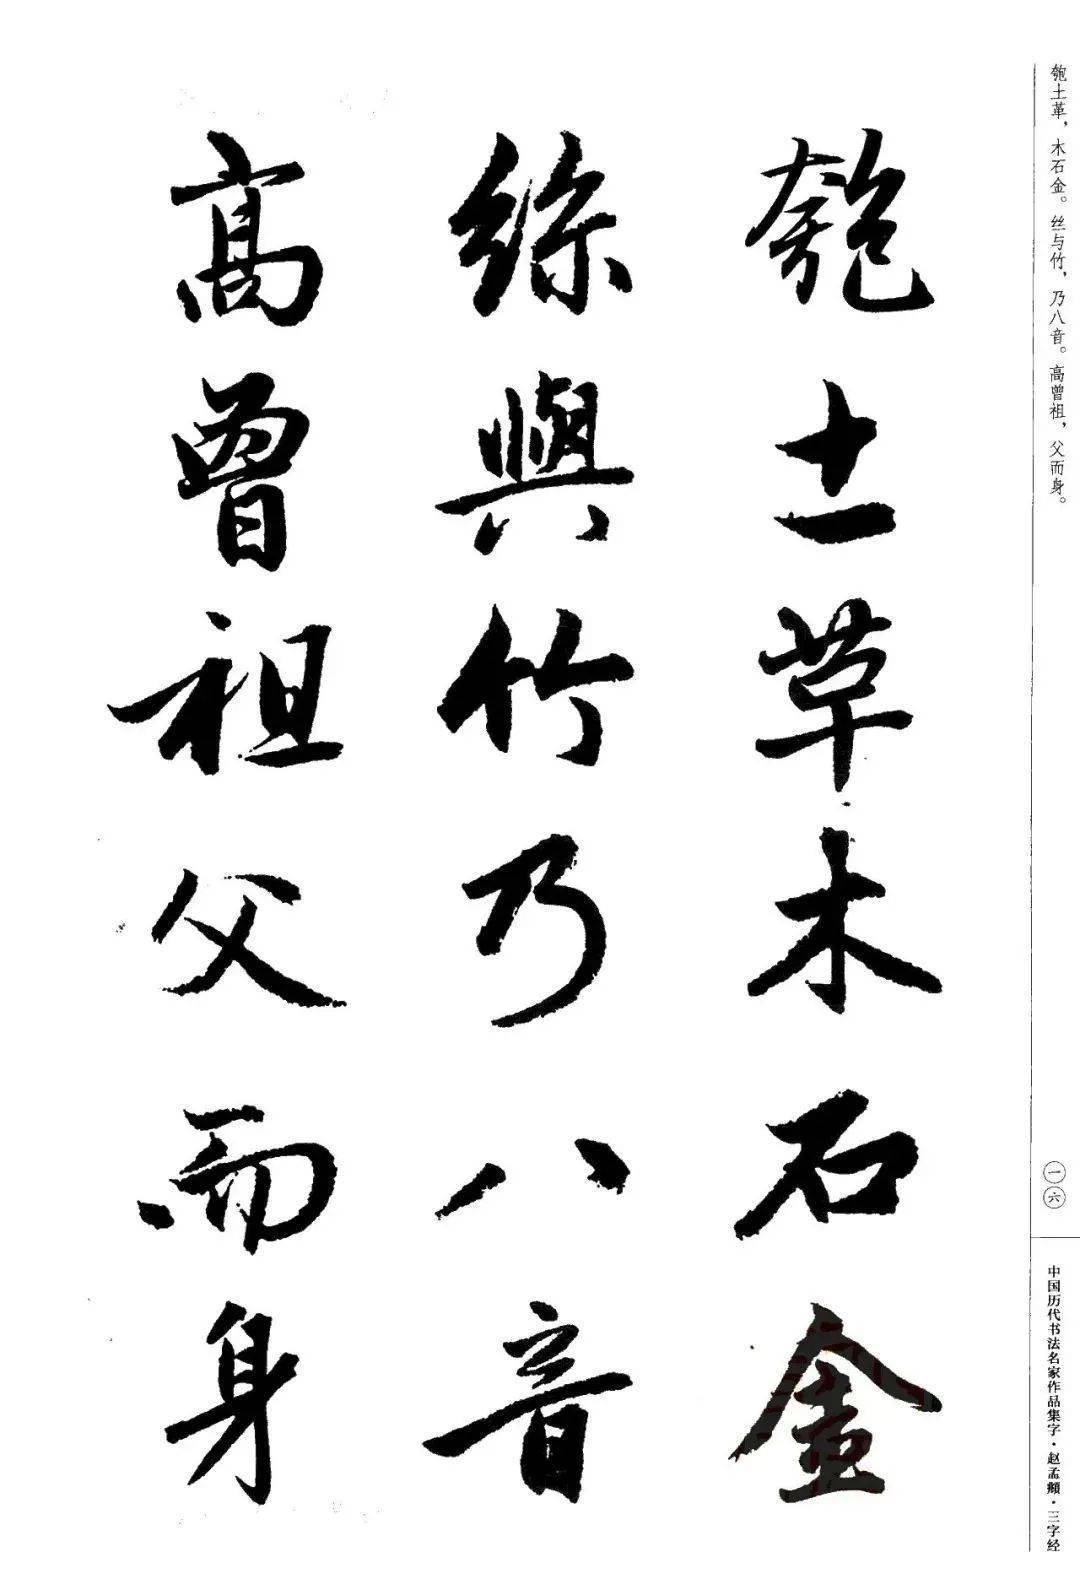 匏土革，木石金。丝与竹，乃八音。高曾祖，父而身。
一六
中国历代书法名家作品集字·赵孟頫·三字经
匏土革木石金
絲與竹乃八音
髙曾祖父而身